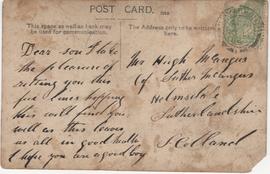 POST CARD.
This space as well as back may be used for communication.
The Address only to be written here.
Dear son I take
the pleasure of
riting you this
few lines hopping
this will find you
well as this leaves
us all in good health
I hope you are a good boy
Mr Hugh McAngus
Helmsdale
Sutherlandshire
Scotland